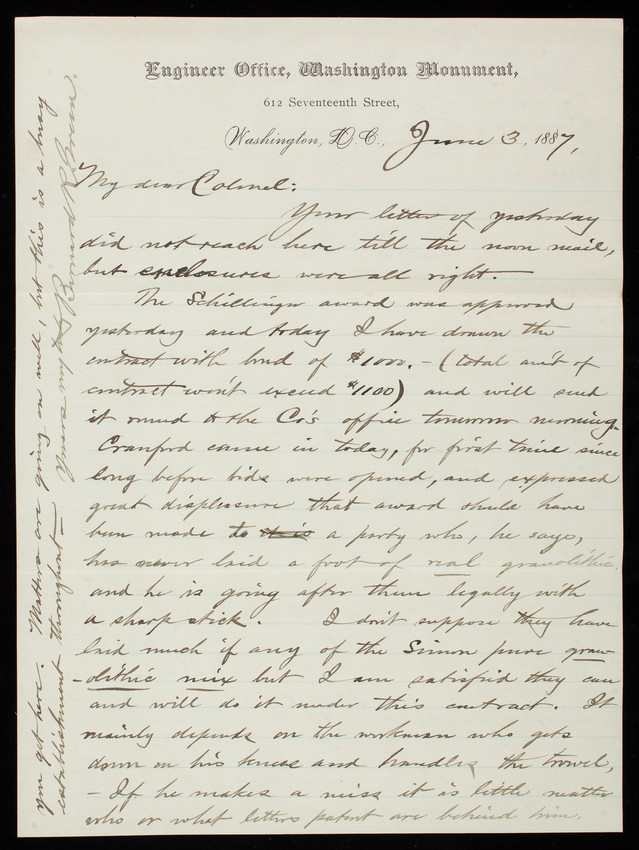 Engineer Office, Washington Monument,
612 Seventeenth Street,
Washington, D.C., June 3, 1887,
My dear Colonel:
Your letter of yesterday
did not reach here till the noon mail,
but enclosures were all right.
The Schillinger award was approved
yesterday and today I have drawn the
contract with bond of $1000. - (total am't of
contract won't exceed $1100) and will send
it round to the Co's office tomorrow morning.
Cranford came in today, for first time since
long before bids were opened, and expressed
great displeasure that award should have
been made to this a party who, he says,
has never laid a foot of real granolithic,
and he is going after them legally with
a sharp stick. I don't suppose they have
laid much if any of the Simon pure gran-
-olithic mix but I am satisfied they can
and will do it under this contract. It
mainly depends on the workman who gets
down on his knees and handles the trowel,
- If he makes a miss it is little matter
who or what letters patent are behind him.
you get here. Matters are going on well, but this is a busy
establishment throughout—
Yours very truly Bernard R. Green.